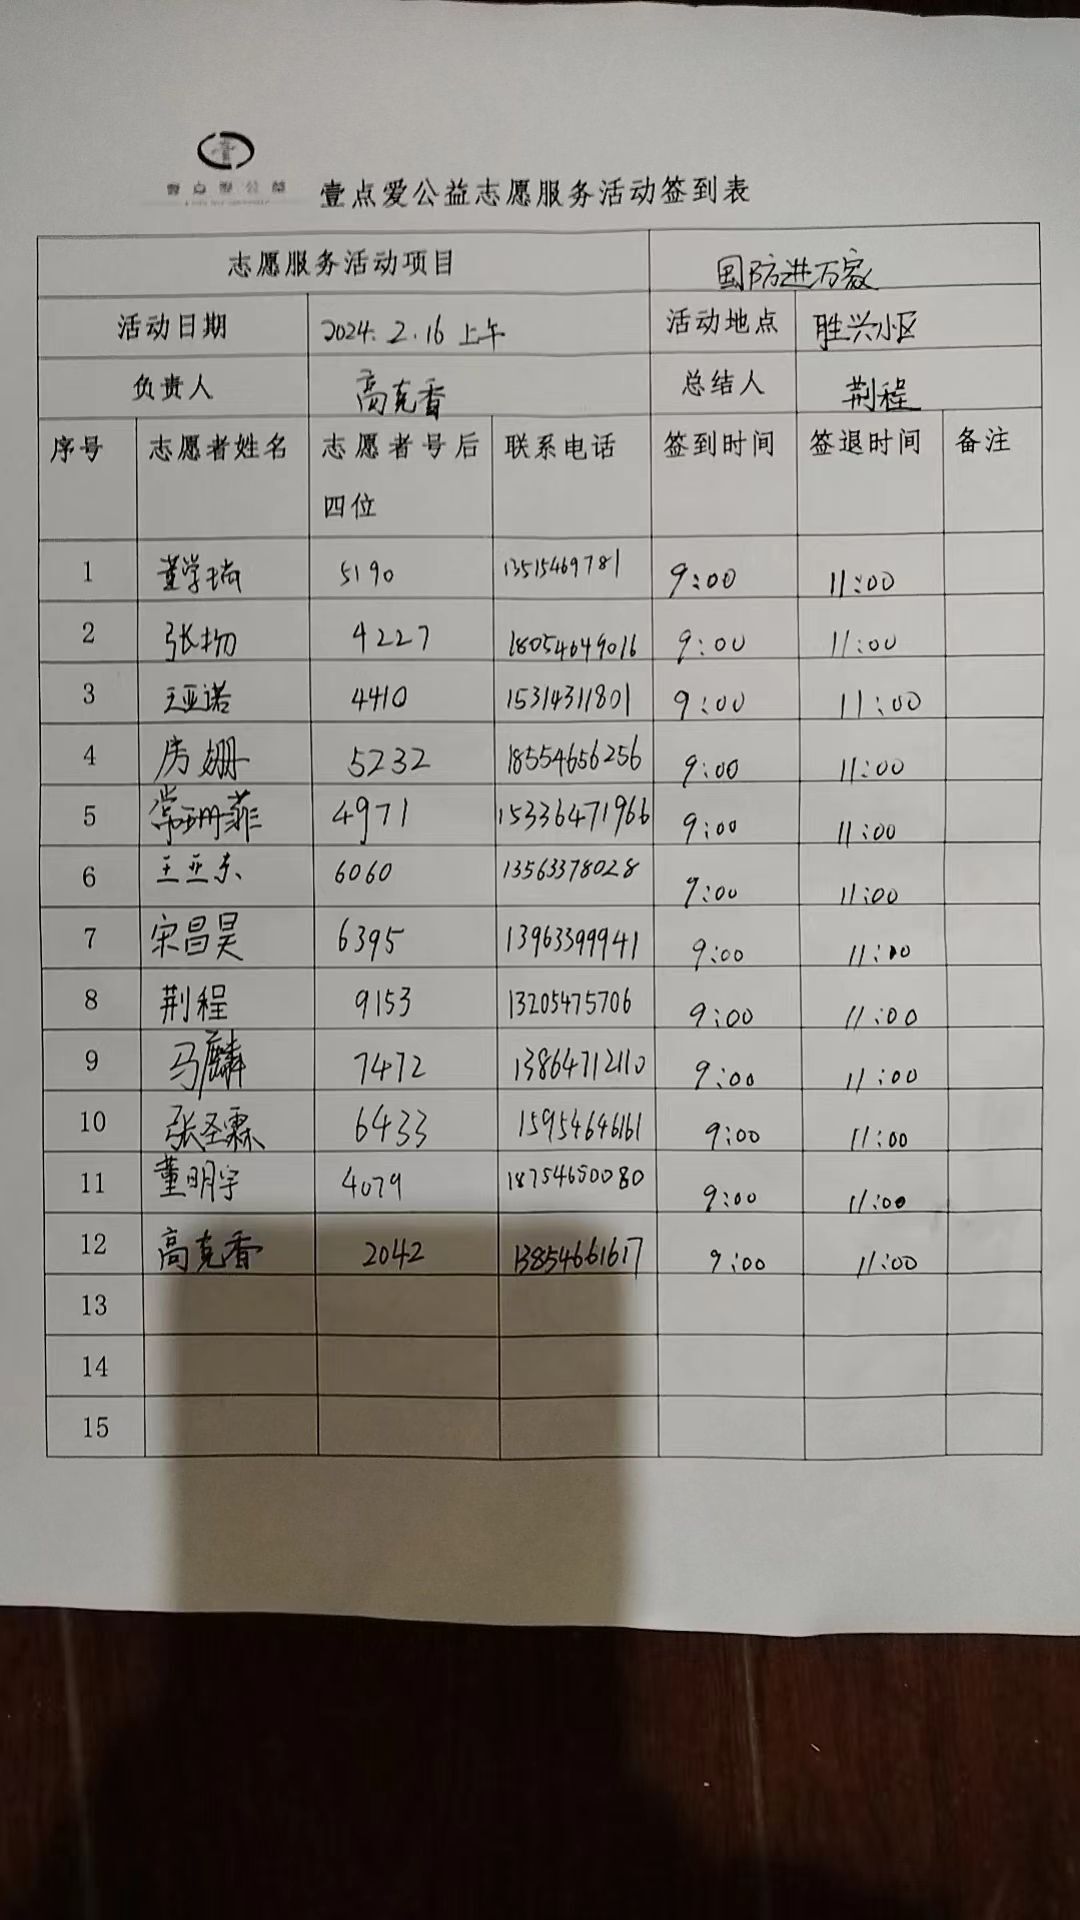 壹点爱公益
壹点爱公益志愿服务活动签到表
志愿服务活动项目 国防进万家
活动日期 2024.2.16 上午 活动地点 胜兴小区
负责人 高克香 总结人 荆程
序号 志愿者姓名 志愿者号后四位 联系电话 签到时间 签退时间 备注
1 董学瑞 5190 13515469781 9:00 11:00
2 张扬 4227 18054649016 9:00 11:00
3 王亚诺 4410 15314311801 9:00 11:00
4 房姗 5232 18554656256 9:00 11:00
5 常珊菲 4971 15336471966 9:00 11:00
6 王亚东 6060 13563378028 9:00 11:00
7 宋昌昊 6395 13963399941 9:00 11:00
8 荆程 9153 13205475706 9:00 11:00
9 马麟 7472 13864712110 9:00 11:00
10 张圣霖 6433 15954646161 9:00 11:00
11 董明宇 4079 18754650080 9:00 11:00
12 高克香 2042 13854661617 9:00 11:00
13
14
15